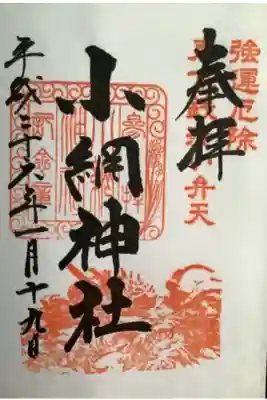 強運厄除
弁天
奉拝
小網神社
平成二十六年一月十九日